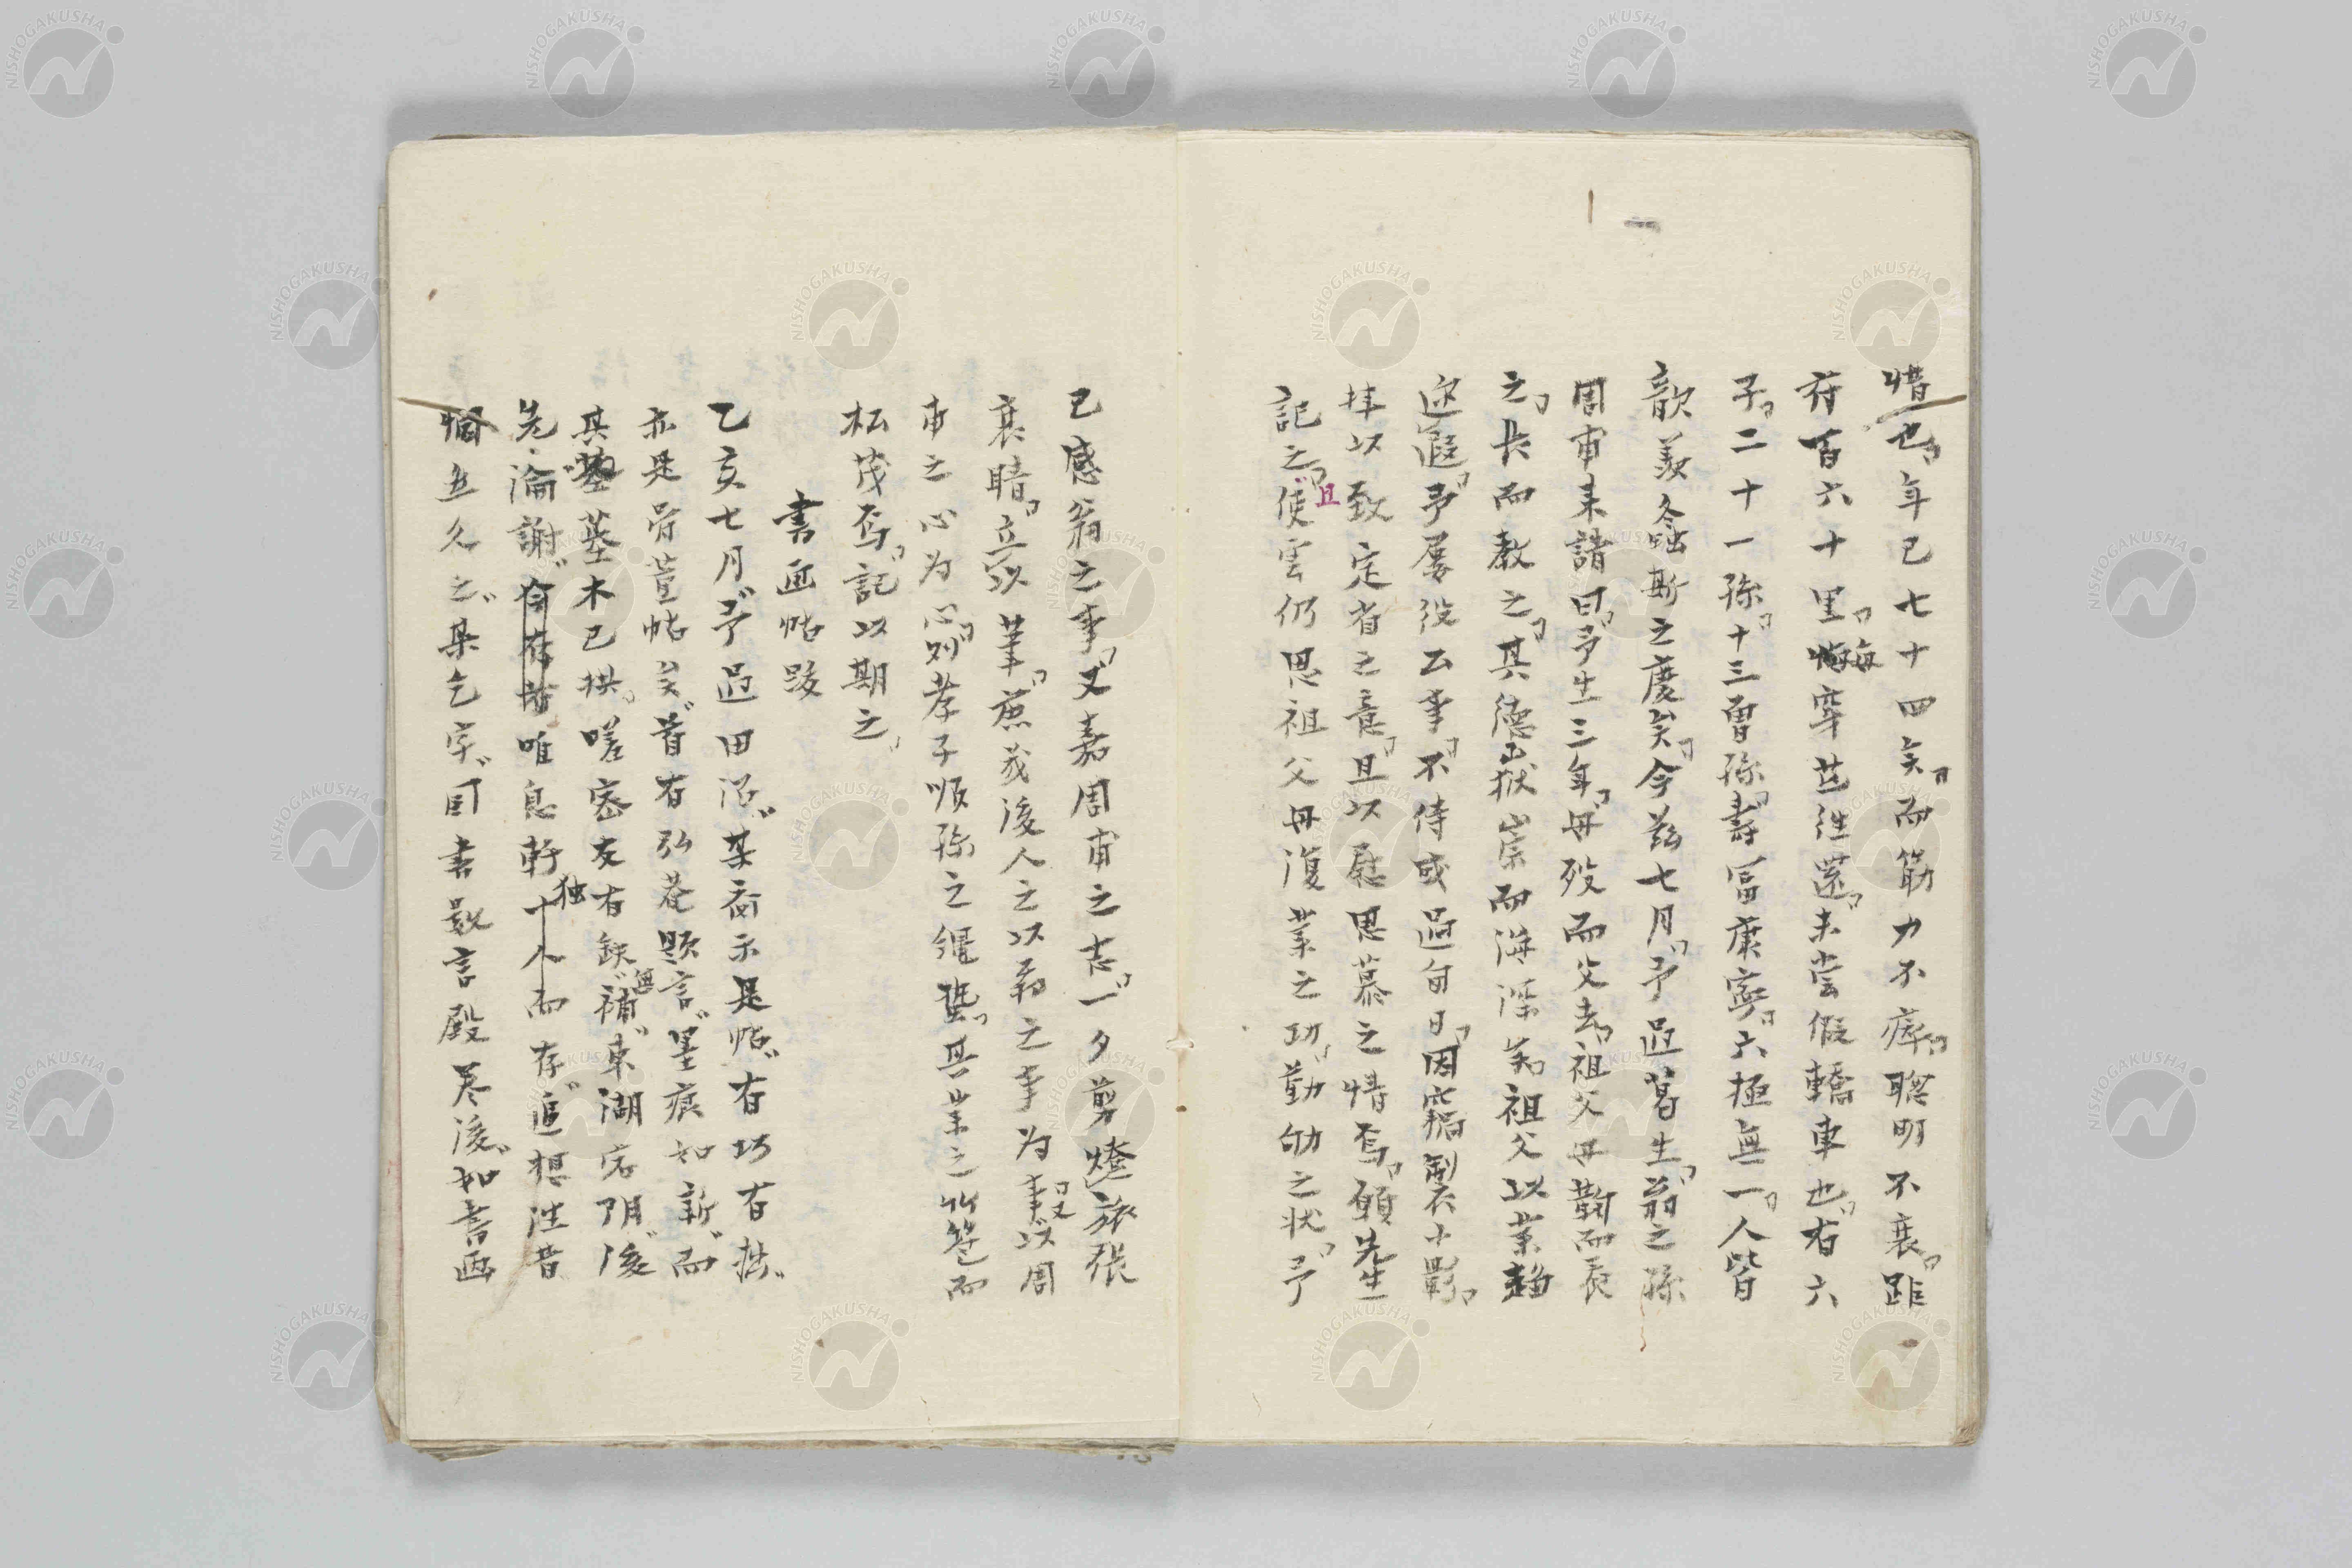 惜也年已七十四矣而筋力不痺聡明不衰距
府百六十里毎穿芒往還未嘗假轎車也有六
子二十一孫十三曽孫壽冨康寧六極無一人皆
歆羨螽斯之慶矣今茲七月予過葛生翁之孫
周甫来請曰予生三年毋殁而父去祖父毋鞠而長
之長而教之其德嶽崇而海深矣祖父以業趋
迩遐予屡役公事不侍或過旬日因竊製小影
拝以致定省之意且以慰思慕之情焉願先生
記之且使雲仍思祖父毋復業之功勤劬之状予
已感翁之事又嘉周甫之志一夕剪燈旅張
衰睛立以筆庶茂後人之以翁之事為事又以周
甫之心為心則孝子順孫之繩蟄其業之竹苞而
松茂焉記以期之
書画帖跋
乙亥七月予過田沼某斎示是帖有巧有拙
亦是骨董帖矣首有弘菴題言墨痕如新而
其墓木已拱嗟密友有缺無補東湖宕陰後
先淪謝唯息軒独而存追想往昔
悵惘久之某乞字因書數言殿尽後如書画